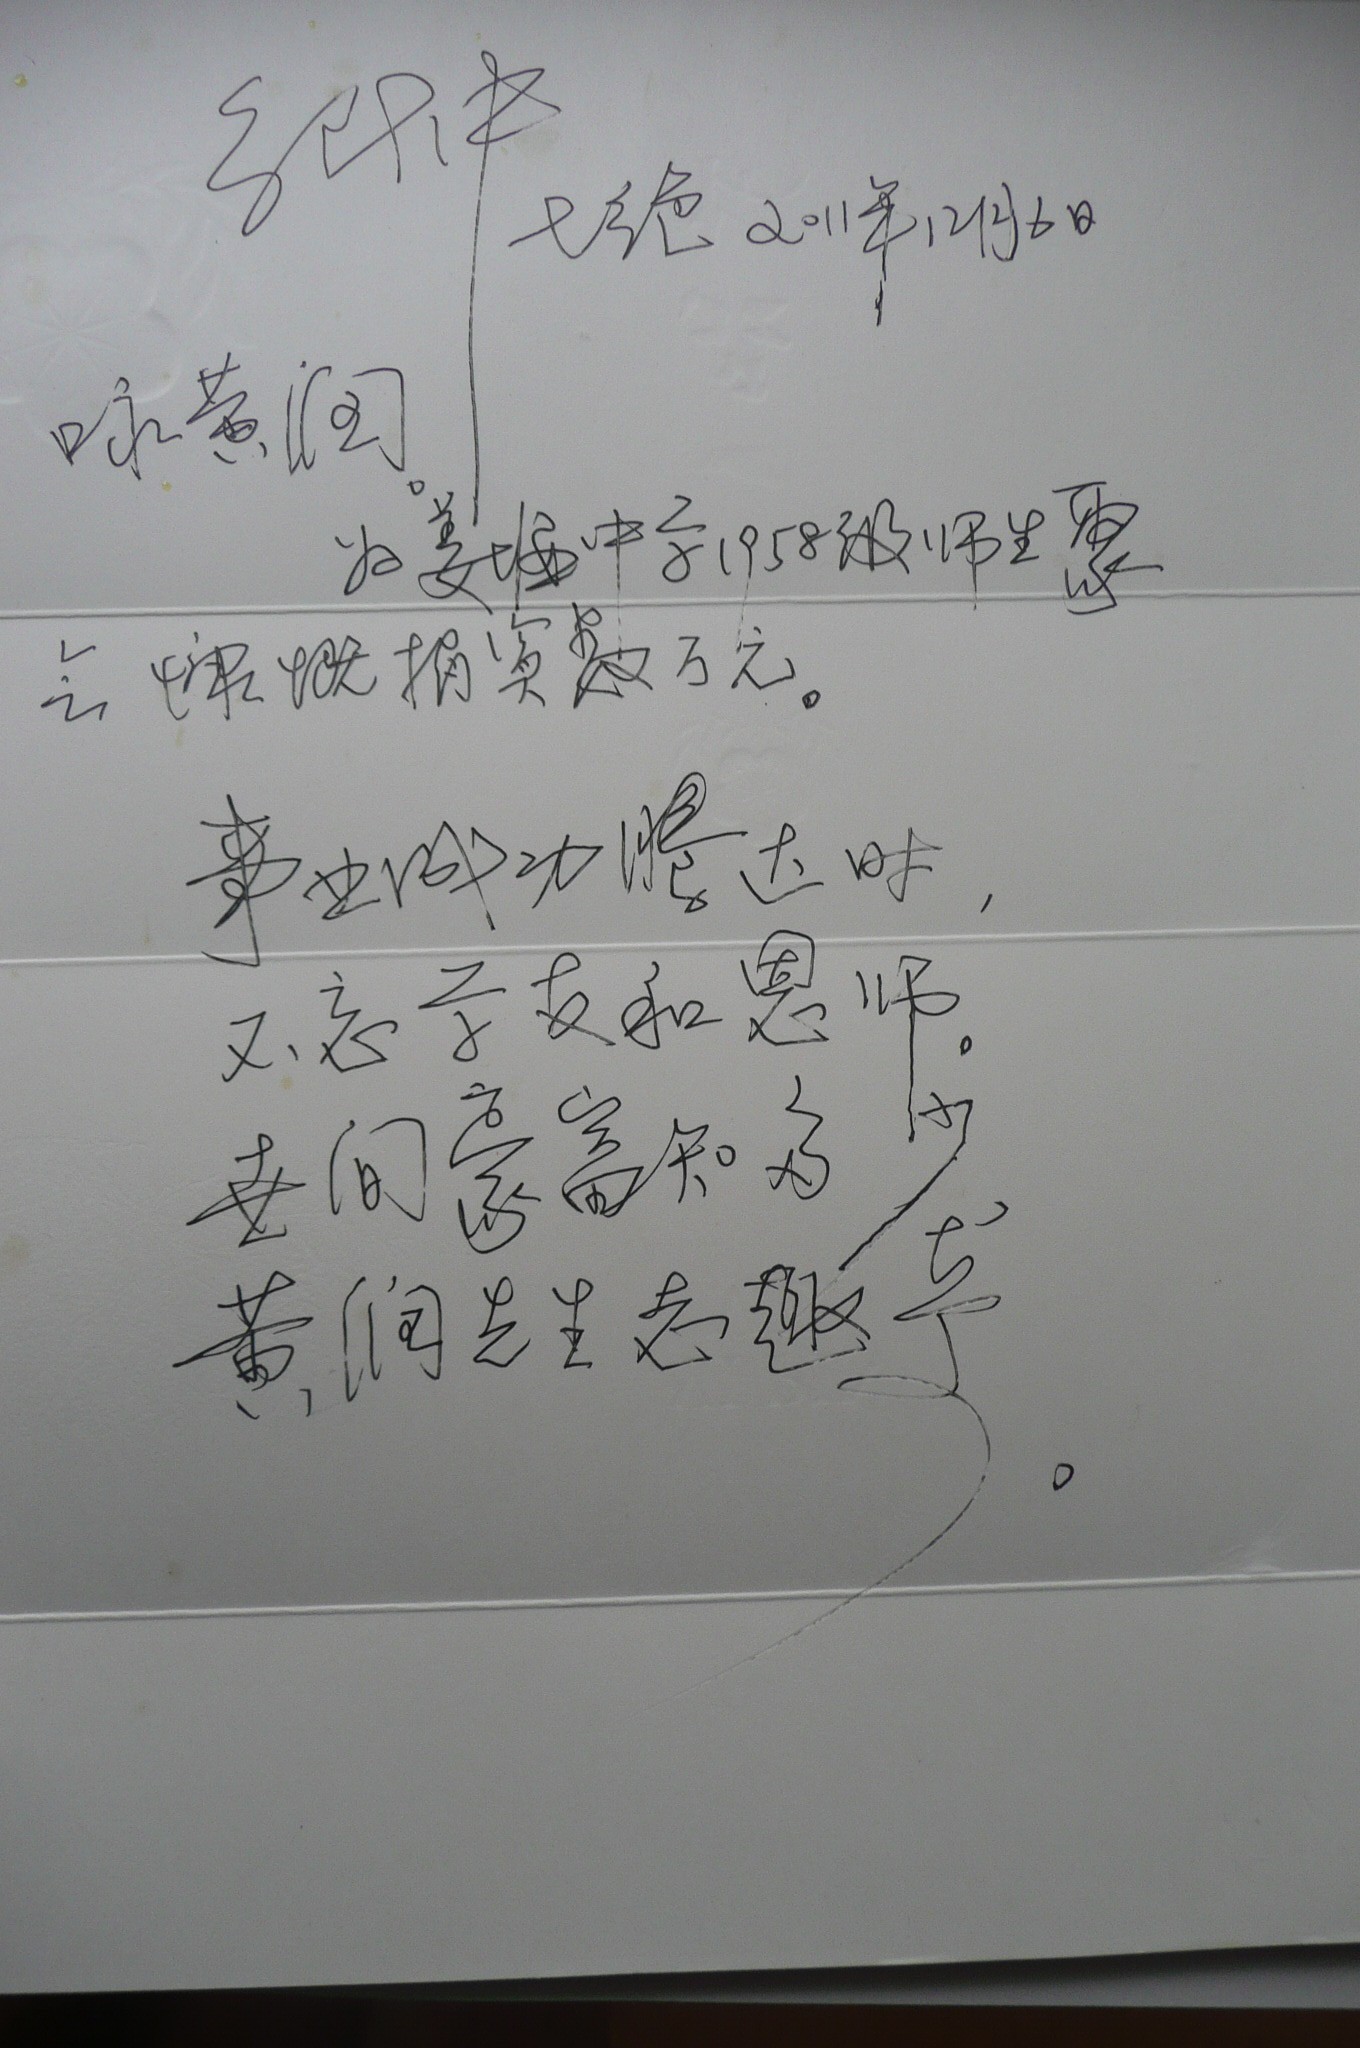 七绝 2011年12月6日
咏黄润。
为姜堰中学1958级师生聚
会慷慨捐资数万元。
事业成功腾达时,
不忘学友和恩师。
世间豪富知多少
黄润先生志趣奇。